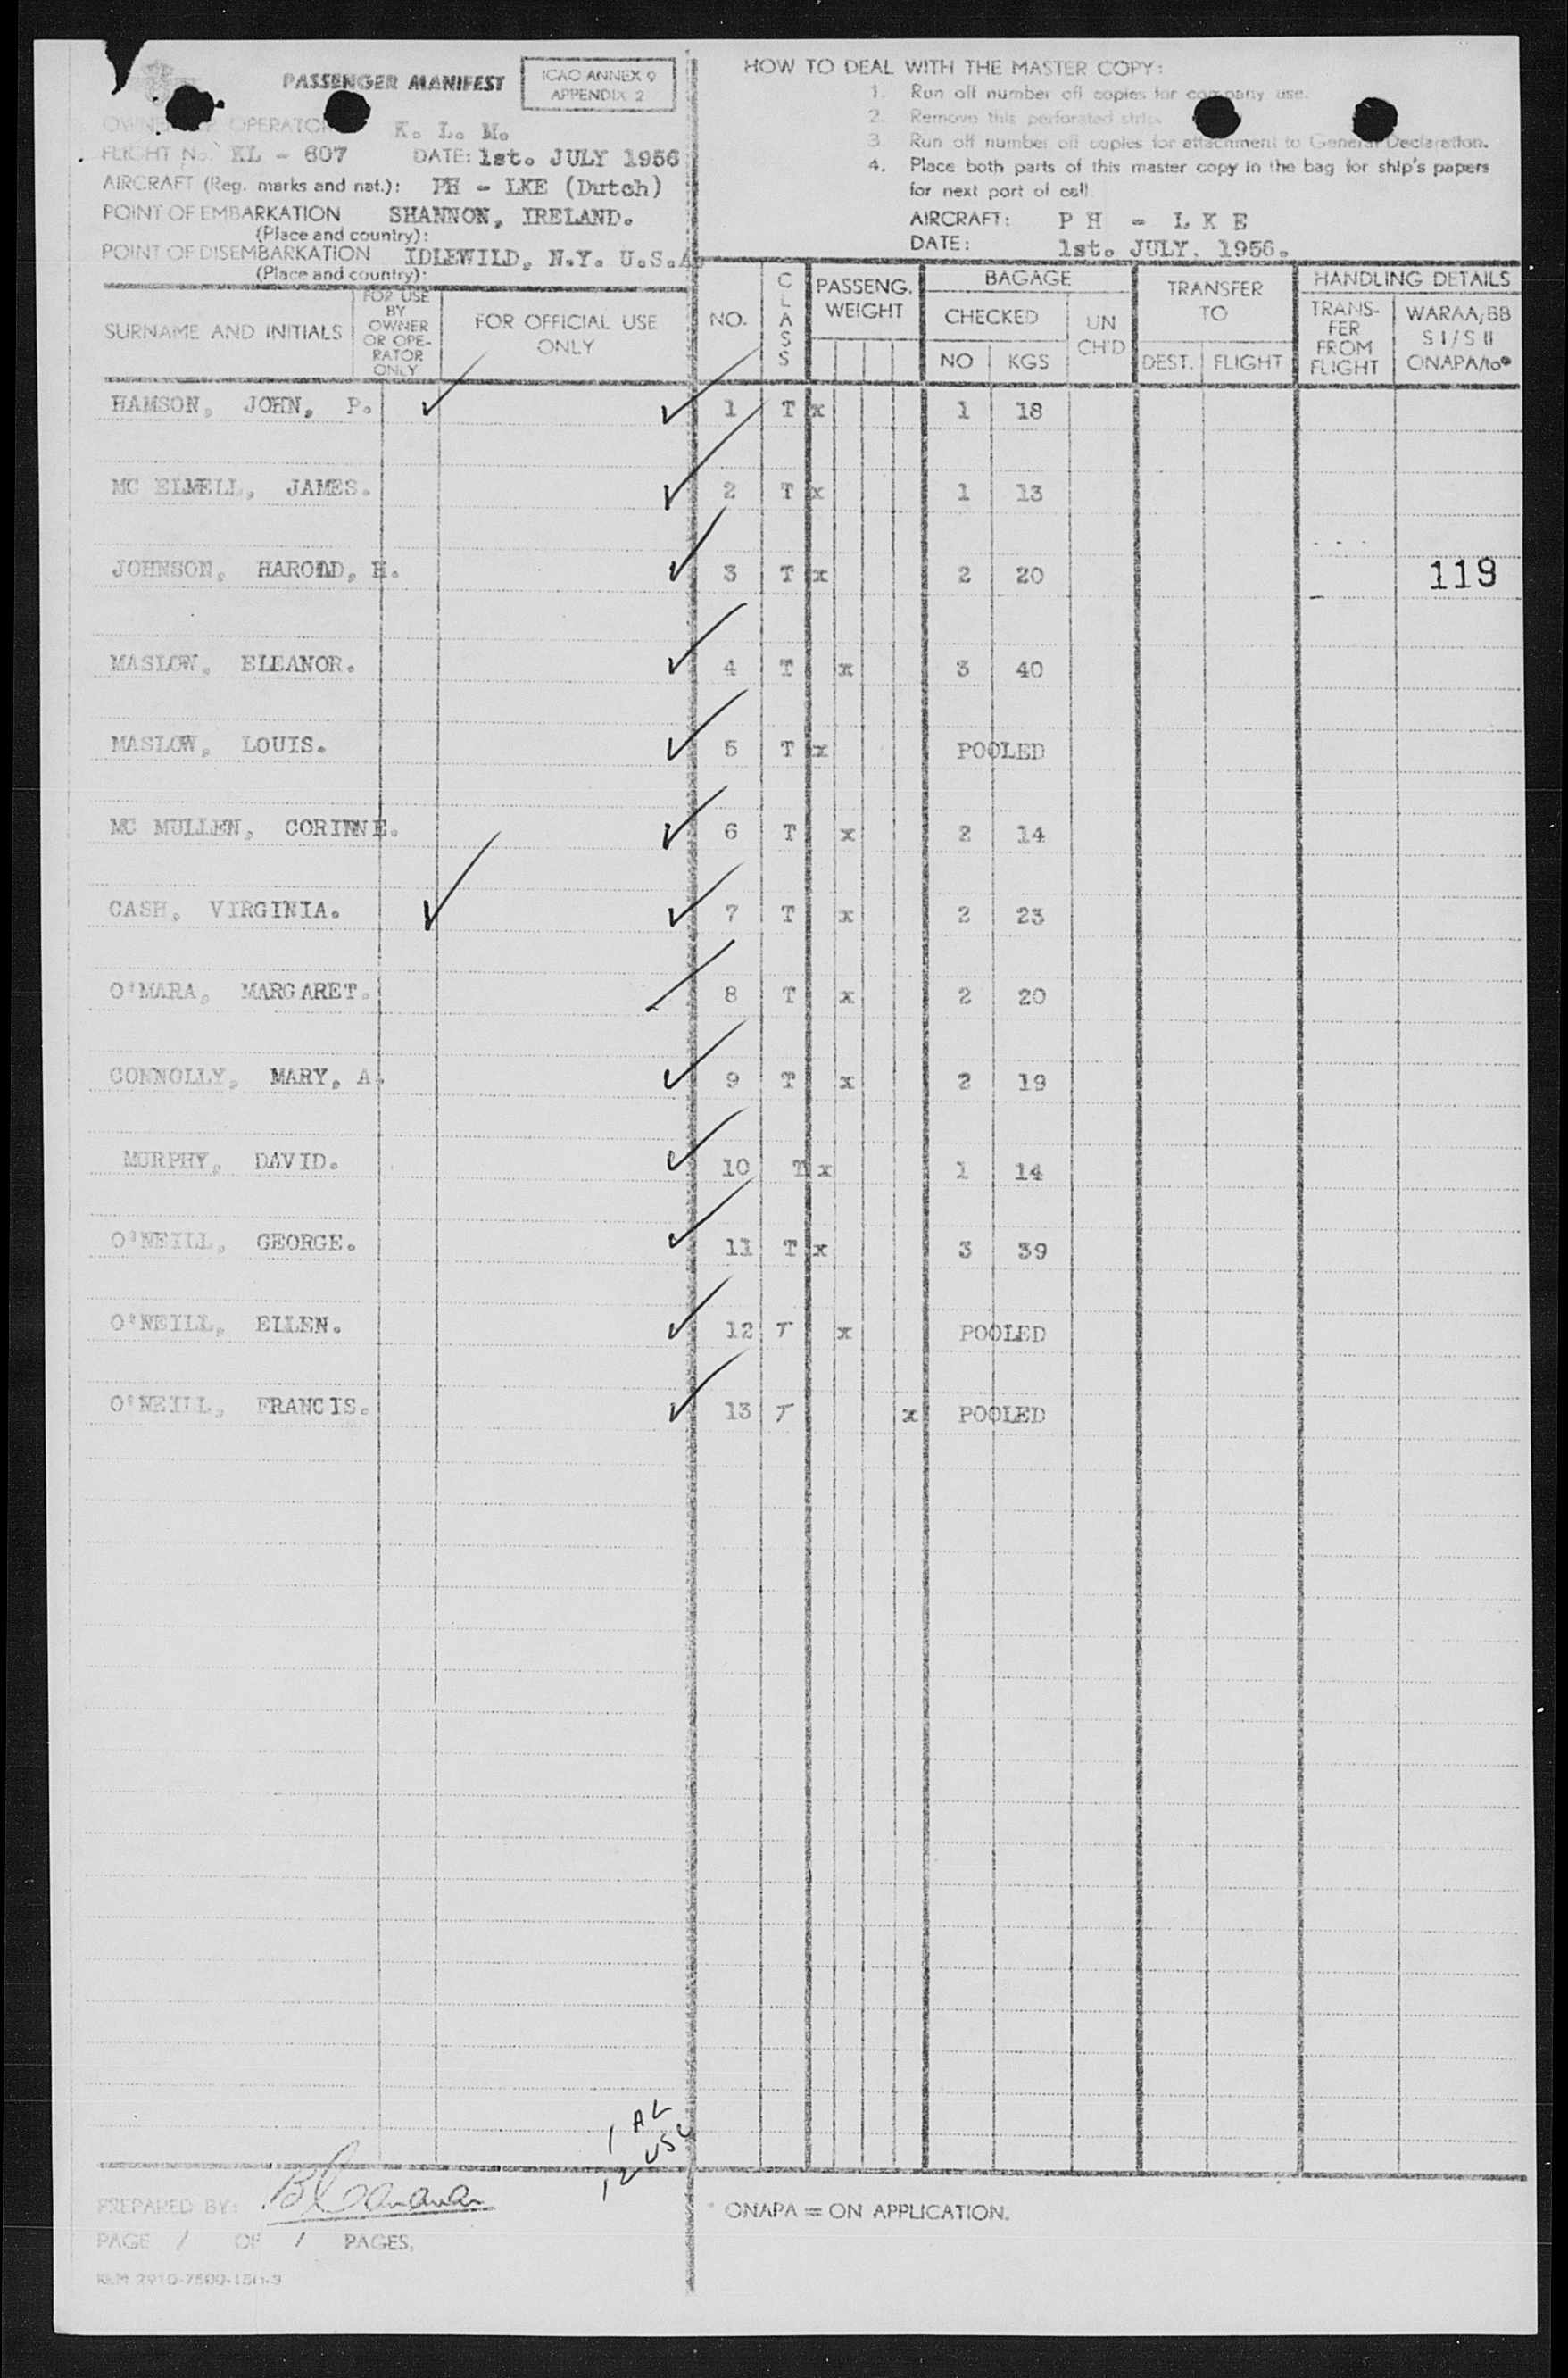 PASSENGER MANIFEST
ICAO ANNEX 9
APPENDIX 2
OPERATOR K. L. M.
FLIGHT No. KL - 607 DATE: 1st. JULY 1956
AIRCRAFT (Reg. marks and nat.): PH - LKE (Dutch)
POINT OF EMBARKATION SHANNON, IRELAND.
(Place and country):
POINT OF DISEMBARKATION IDLEWILD, N.Y. U.S.A.
(Place and country):
HOW TO DEAL WITH THE MASTER COPY:
1. Run off number off copies for company use.
2. Remove this perforated strip.
3. Run off number off copies for attachment to General Declaration.
4. Place both parts of this master copy in the bag for ship's papers
for next port of call.
AIRCRAFT: P H - L K E
DATE: 1st. JULY. 1956.
SURNAME AND INITIALS
FOR USE
BY
OWNER
OR OPE-
RATOR
ONLY
FOR OFFICIAL USE
ONLY
NO.
CLASS
PASSENG.
WEIGHT
BAGAGE
CHECKED
NO KGS
UN
CH'D
TRANSFER
TO
DEST. FLIGHT
HANDLING DETAILS
TRANS-
FER
FROM
FLIGHT
WARAA/BB
S I / S II
ONAPA/to*
HAMSON, JOHN, P. ✓ ✓ 1 T x 1 18
MC ELMELL, JAMES. ✓ 2 T x 1 13
JOHNSON, HAROLD, H. ✓ 3 T x 2 20 119
MASLOW, ELEANOR. ✓ 4 T x 3 40
MASLOW, LOUIS. ✓ 5 T x POOLED
MC MULLEN, CORINNE. ✓ 6 T x 2 14
CASH, VIRGINIA. ✓ ✓ 7 T x 2 23
O'MARA, MARGARET. ✓ 8 T x 2 20
CONNOLLY, MARY, A. ✓ 9 T x 2 19
MURPHY, DAVID. ✓ 10 T x 1 14
O'NEILL, GEORGE. ✓ 11 T x 3 39
O'NEILL, ELLEN. ✓ 12 T x POOLED
O'NEILL, FRANCIS. ✓ 13 T x POOLED
1 AL
12 USC
PREPARED BY:
PAGE 1 OF 1 PAGES.
* ONAPA = ON APPLICATION.